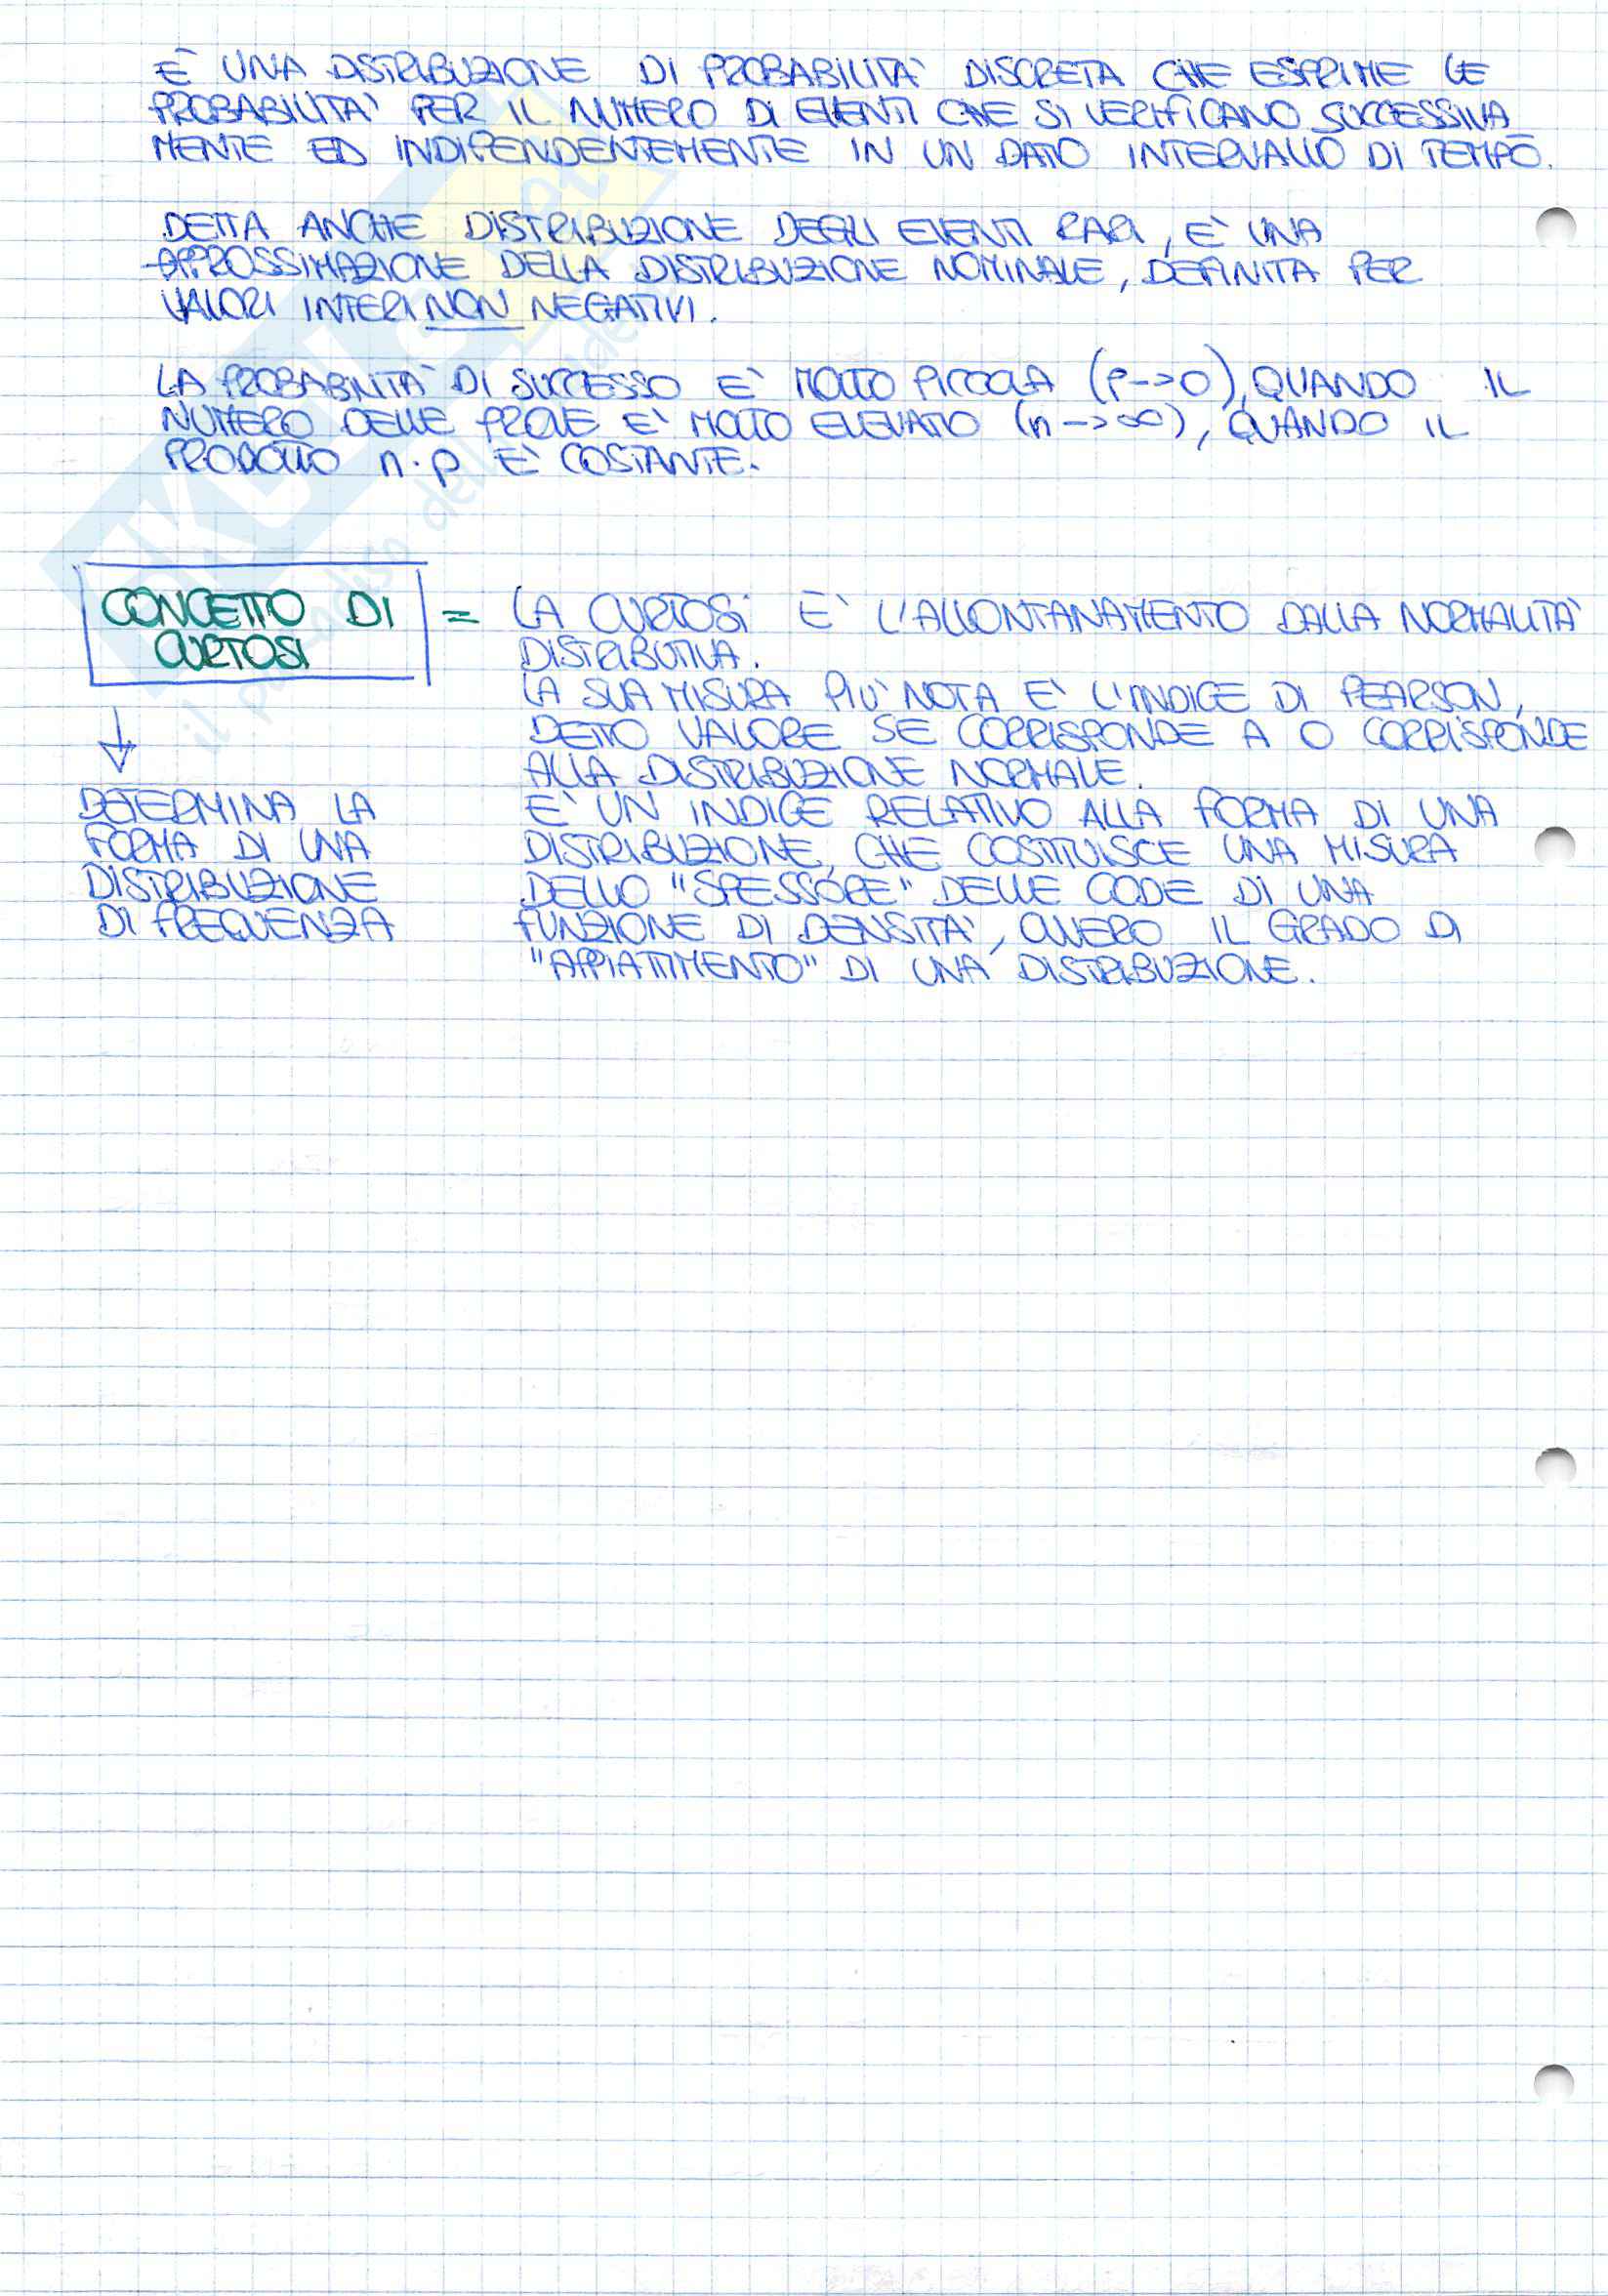 È UNA DISTRIBUZIONE DI PROBABILITA' DISCRETA CHE ESPRIME LE
PROBABILITA' PER IL NUMERO DI EVENTI CHE SI VERIFICANO SUCCESSIVA
MENTE ED INDIPENDENTEMENTE IN UN DATO INTERVALLO DI TEMPO.
DETTA ANCHE DISTRIBUZIONE DEGLI EVENTI RARI, E' UNA
APPROSSIMAZIONE DELLA DISTRIBUZIONE NOMINALE, DEFINITA PER
VALORI INTERI NON NEGATIVI.
LA PROBABILITA' DI SUCCESSO E' MOLTO PICCOLA (P->0), QUANDO IL
NUMERO DELLE PROVE E' MOLTO ELEVATO (n->∞), QUANDO IL
PRODOTTO n·p E' COSTANTE.
CONCETTO DI
CURTOSI
=
LA CURTOSI E' L'ALLONTANAMENTO DALLA NORMALITA'
DISTRIBUTIVA.
LA SUA MISURA PIU' NOTA E' L'INDICE DI PEARSON,
DETTO VALORE SE CORRISPONDE A 0 CORRISPONDE
ALLA DISTRIBUZIONE NORMALE.
E' UN INDICE RELATIVO ALLA FORMA DI UNA
DISTRIBUZIONE, CHE COSTITUISCE UNA MISURA
DELLO "SPESSORE" DELLE CODE DI UNA
FUNZIONE DI DENSITA', OVVERO IL GRADO DI
"APPIATTIMENTO" DI UNA DISTRIBUZIONE.
DETERMINA LA
FORMA DI UNA
DISTRIBUZIONE
DI FREQUENZA